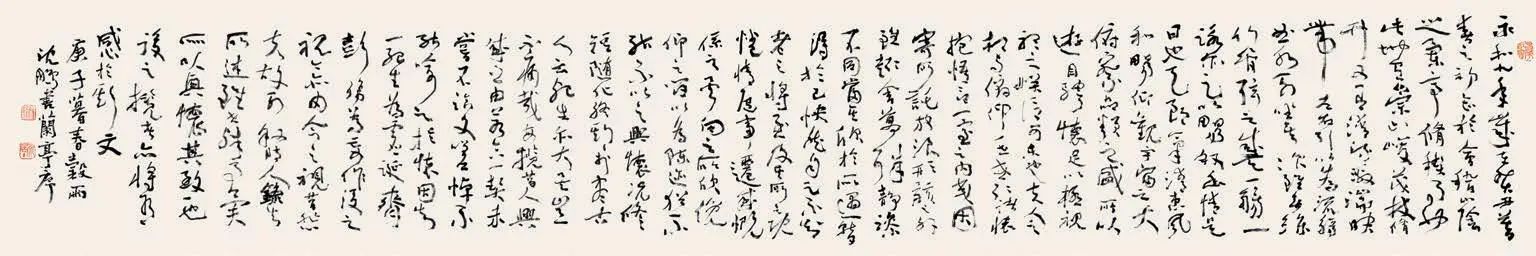 永和九年歲在癸丑暮
春之初會於會稽山陰
之蘭亭脩禊事也
此地有崇山峻茂林脩
竹又有清流激湍映
帶左右引以為流觴
曲水列坐其次雖無絲
竹管弦之盛一觴一
詠亦足以暢敘幽情是
日也天朗氣清惠風
和暢仰觀宇宙之大
俯察品類之盛所以
遊目騁懷足以極視
聽之娛信可樂也夫人之
相與俯仰一世或取諸懷
抱悟言一室之內或因
寄所託放浪形骸之外
雖趣舍萬殊靜躁
不同當其欣於所遇暫
得於己快然自足不知
老之將至及其所之既
惓情隨事遷感慨
係之矣向之所欣俛
仰之間以為陳迹猶不
能不以之興懷況脩
短隨化終期於盡古
人云死生亦大矣豈
不痛哉每攬昔人興
感之由若合一契未
嘗不臨文嗟悼不
能喻之於懷固知
一死生為虛誕齊
彭殤為妄作後之
視今亦由今之視昔悲
夫故列敘時人錄其
所述雖世殊事異
所以興懷其致一也
後之攬者亦將有
感於斯文
庚子暮春穀雨
沈鵬書蘭亭序